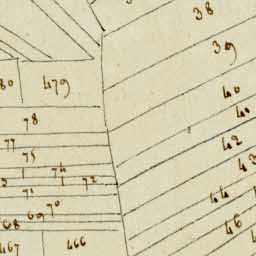 38
39
80 479
40
78
40
77
42
75
43
74
72
71
44
70
69
68
46
467 466